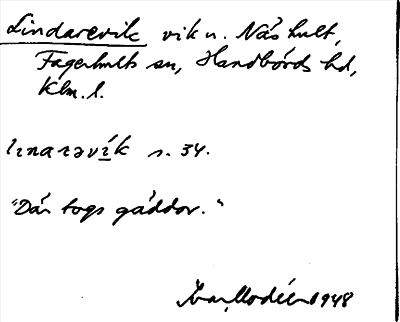 Lindarevik vik u. Näshult,
Fagerhults sn, Handbörds hd,
Klm. l.
s. 34.
"Där togs gäddor."
Ivar Modéer 1948